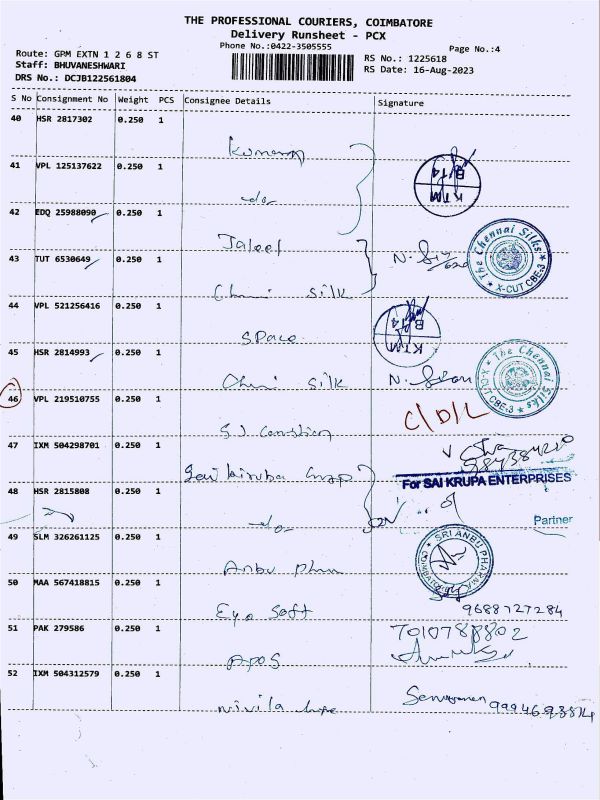 THE PROFESSIONAL COURIERS, COIMBATORE
Delivery Runsheet - PCX
Phone No.:0422-3505555
Page No.:4
Route: GPM EXTN 1 2 6 8 ST
Staff: BHUVANESHWARI
DRS No.: DCJB122561804
RS No.: 1225618
RS Date: 16-Aug-2023
S No Consignment No Weight PCS Consignee Details Signature
40 HSR 2817302 0.250 1
41 VPL 125137622 0.250 1
do
KTM
B/T4
42 EDQ 25988090 0.250 1
Jaleel
43 TUT 6530649 0.250 1
silk
The Chennai Silks
X-CUT CBE-3
44 VPL 521256416 0.250 1
Space
KTM
B/T4
45 HSR 2814993 0.250 1
silk
The Chennai Silks
X-CUT CBE-3
46 VPL 219510755 0.250 1
C/D/L
47 IXM 504298701 0.250 1
For SAI KRUPA ENTERPRISES
48 HSR 2815808 0.250 1
do
Partner
49 SLM 326261125 0.250 1
Anbu
SRI ANBU PHARMA
COIMBATORE
50 MAA 567418815 0.250 1
Eye Soft
9688727284
51 PAK 279586 0.250 1
Apos
7010788802
52 IXM 504312579 0.250 1